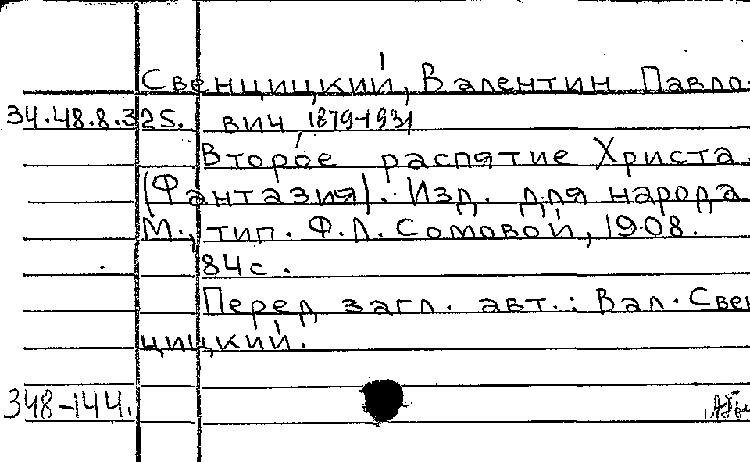 Свенцицкий, Валентин Павло-
34.48.8.325. вич, 1879-1931
Второе распятие Христа.
(Фантазия). Изд. для народа
М., тип. Ф.Л. Сомовой, 1908.
84с.
Перед загл. авт.: Вал. Свен
цицкий.
348-144.